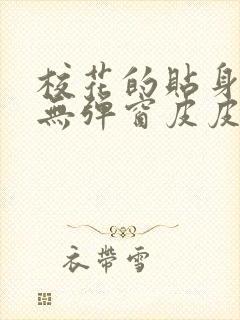 校花的貼身
無弹窗皮皮
衣帶雪